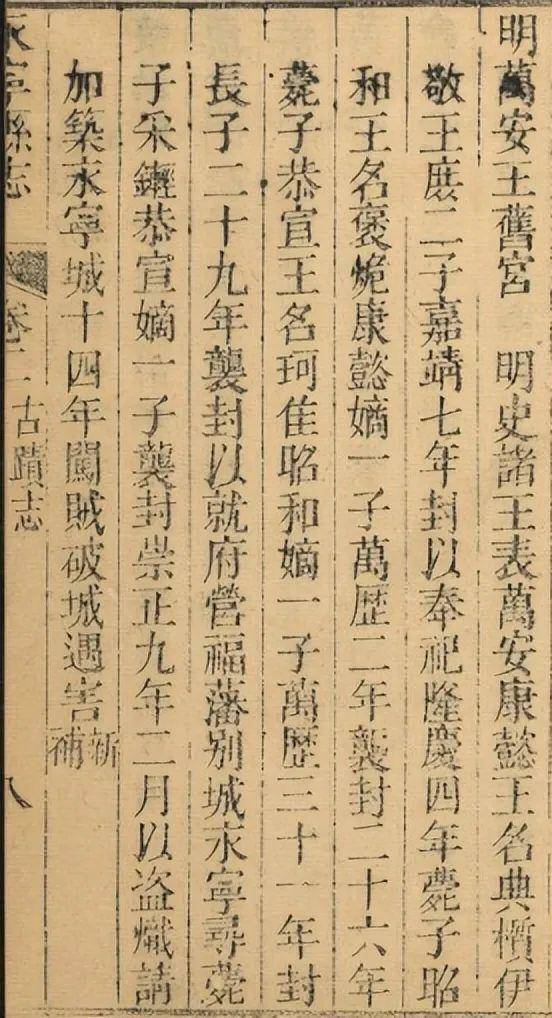 明萬安王舊宮　明史諸王表萬安康懿王名典樻伊
敬王庶二子嘉靖七年封以奉祀隆慶四年薨子昭
和王名褒㷄康懿嫡一子萬歴二年襲封二十六年
薨子恭宣王名珂隹昭和嫡一子萬歴三十一年封
長子二十九年襲封以就府營福藩别城永寧尋薨
子采𨰁恭宣嫡一子襲封崇正九年二月以盗熾請
加築永寧城十四年闖賊破城遇害新補
永寧縣志 卷二 古蹟志 八